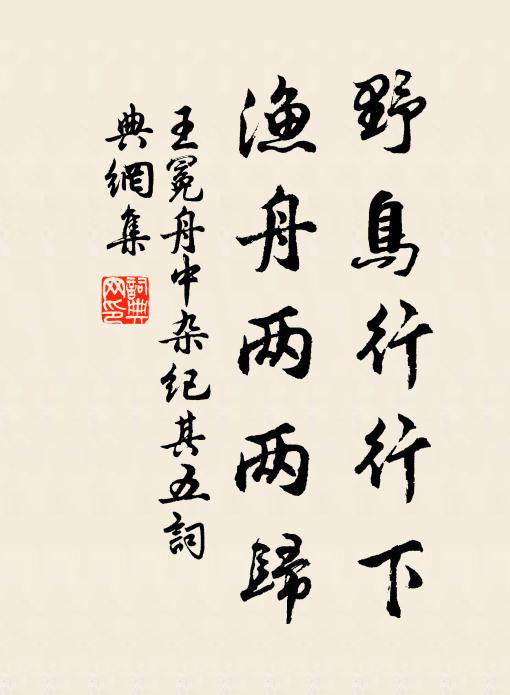 野鳥行行下
漁舟两两歸
王冕舟中杂纪其五詞
典網集
詞典
网印